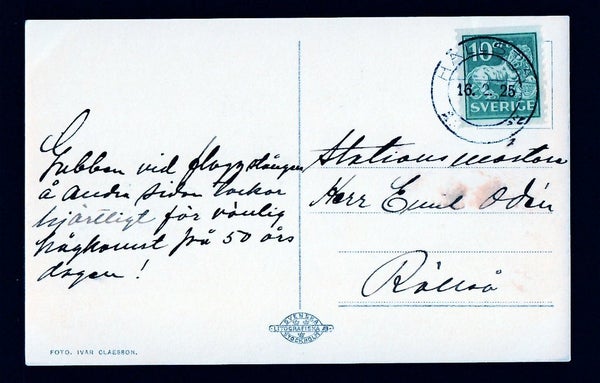 Gubben vid flaggstången
å andra sidan tackar
hjärtligt för vänlig
hågkomst på 50 års
dagen!
Stationsmästare
Herr Emil Odén
FOTO. IVAR CLAESSON.
SVENSKA
LITOGRAFISKA AB
STOCKHOLM
10
SVERIGE
16. 2. 25